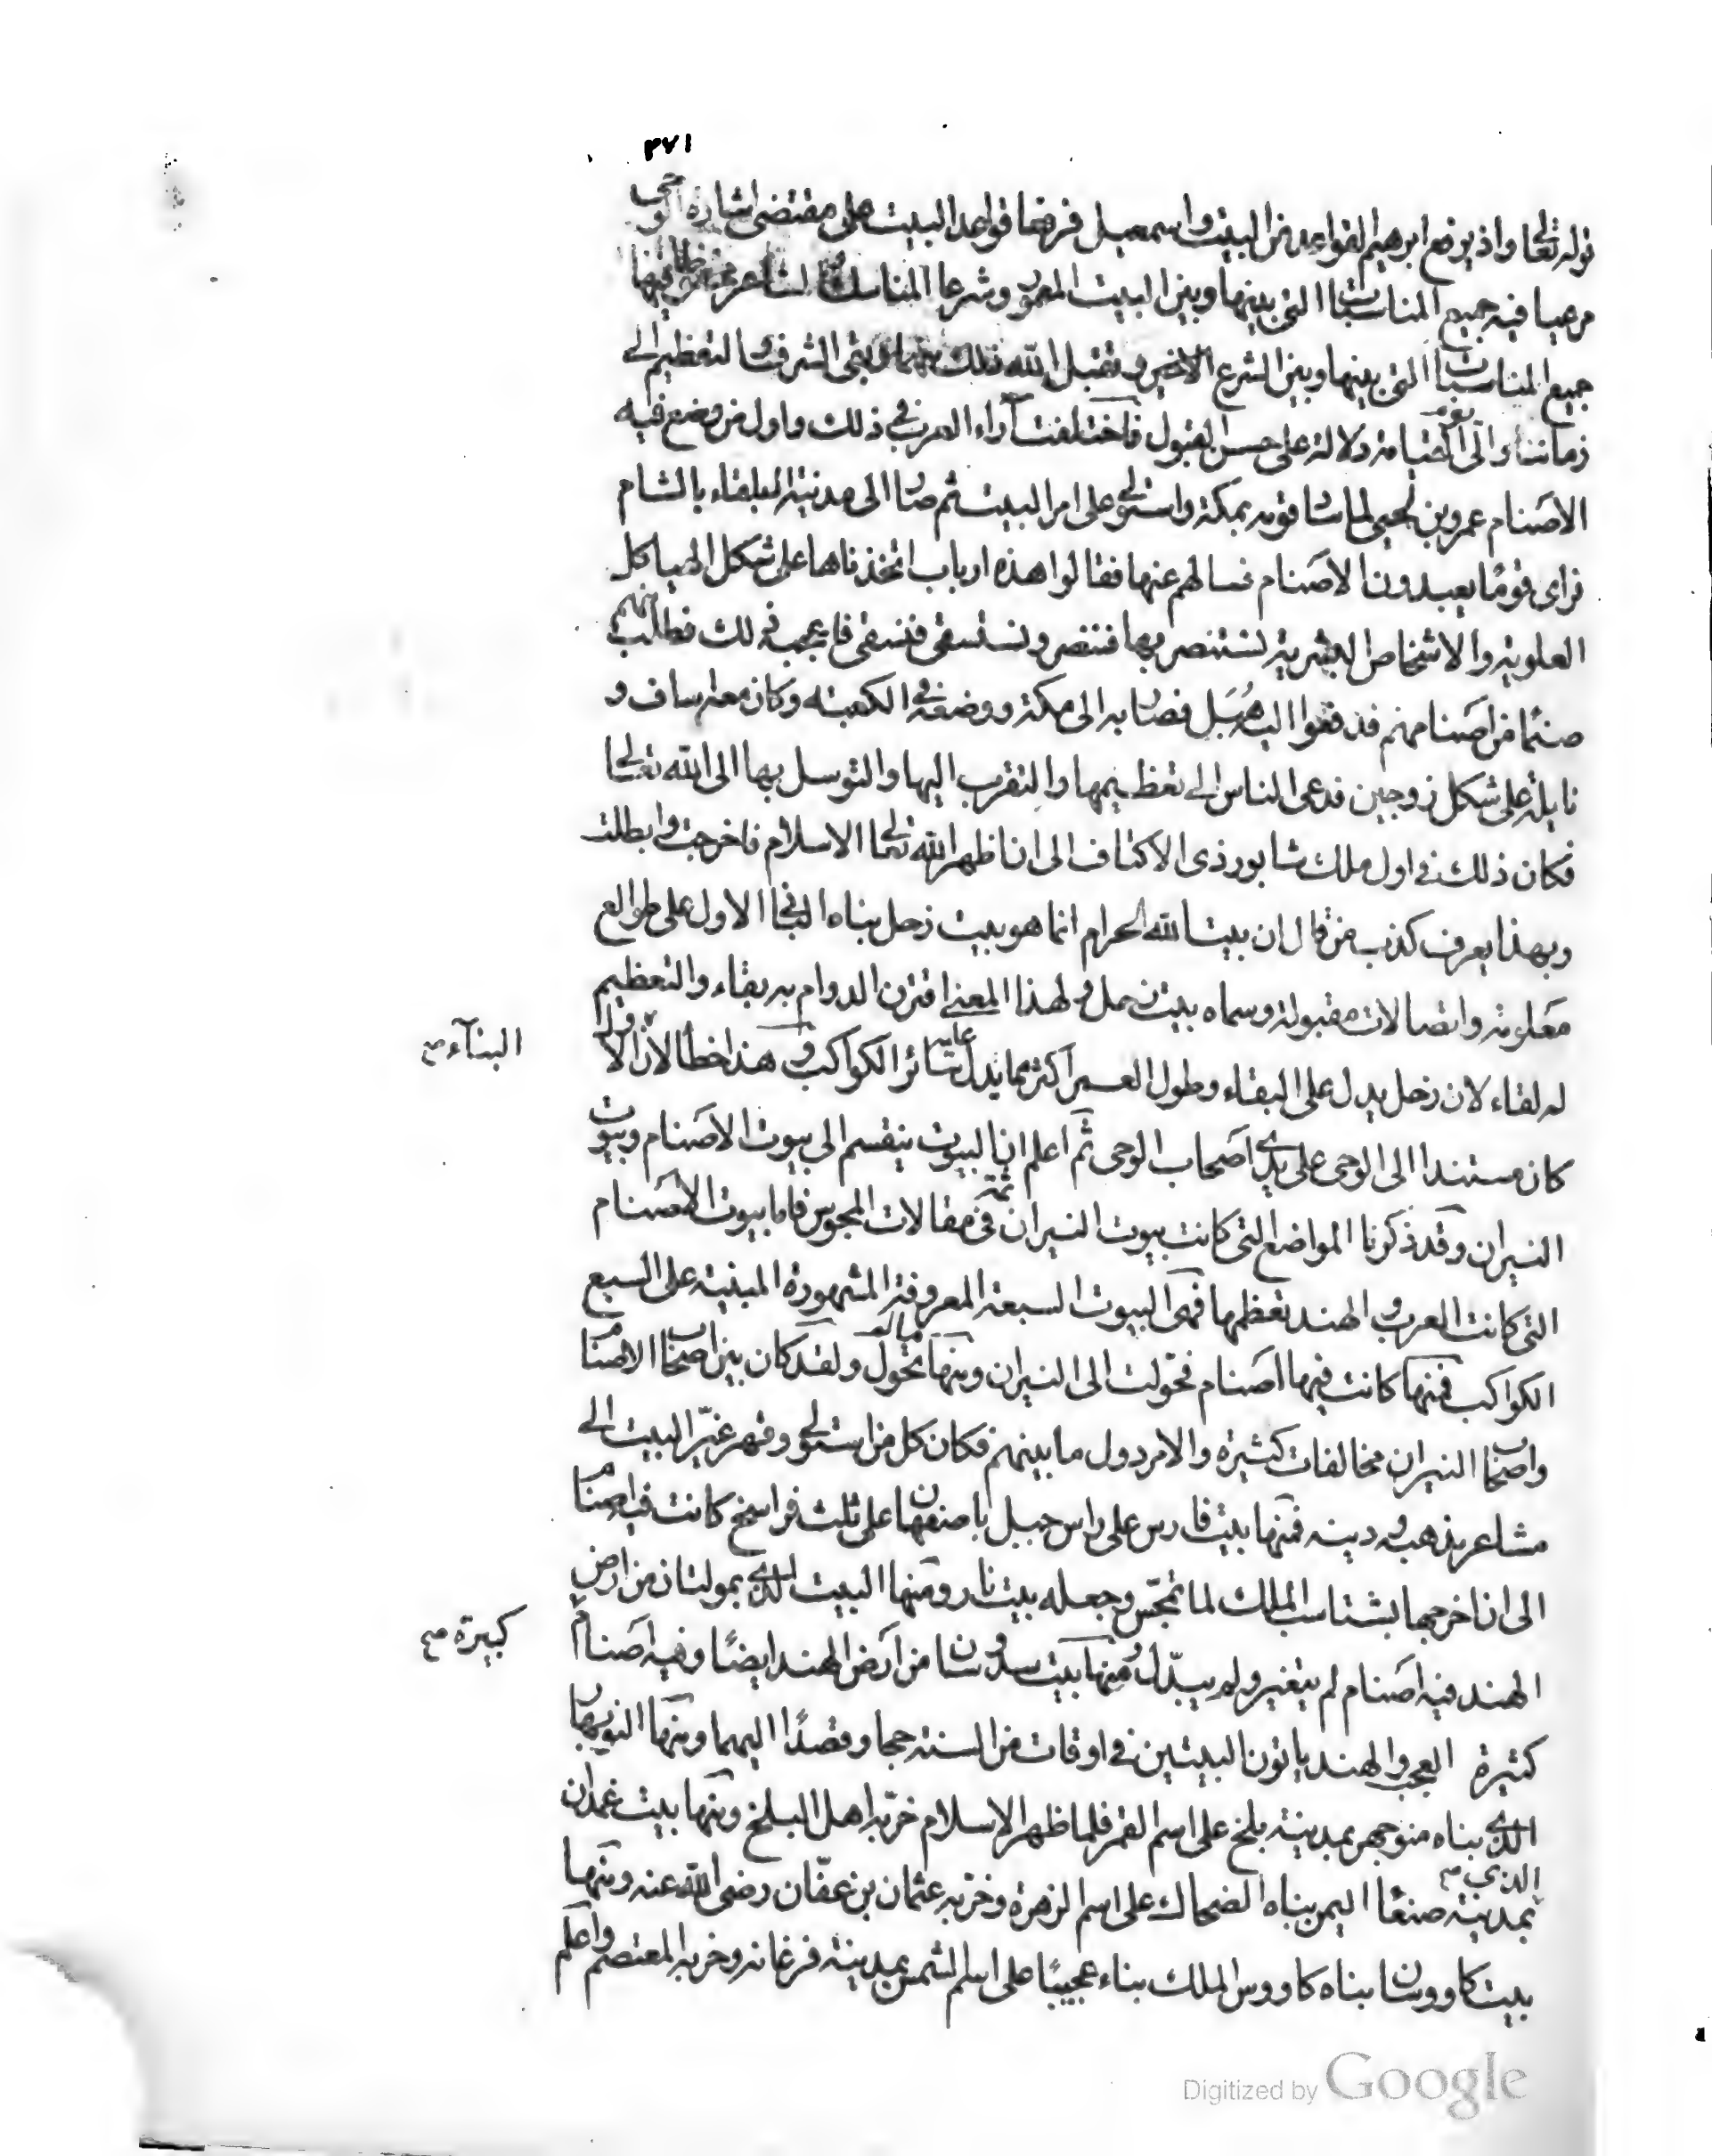 ٣٧١
قوله تعالى واذ يرفع ابرهيم القواعد من البيت واسمعيل فرفعا قواعد البيت على مقتضى اشارة الوحى
مرعيا فيه جميع المناسبات التى بينها وبين البيت المعمور وشرعا المناسك والمشاعر محفوظا فيها
جميع المناسبات التى بينها وبين الشرع الاخير وتقبل الله ذلك منهما وبقى الشرف والتعظيم الى
زماننا والى يوم القيامة دلالة على حسن القبول فاختلفت آراء العرب فى ذلك واول من وضع فيه
الاصنام عمرو بن لحيى لما شا قومه بمكة واستولى على امر البيت ثم صار الى مدينة البلقاء بالشام
فراى قوما يعبدون الاصنام فسالهم عنها فقالوا هذه ارباب اتخذناها على شكل الهياكل
العلوية والاشخاص البشرية نستنصر بها فننصر ونستسقى فنسقى فاعجبه ذلك فطلب منهم
صنما من اصنامهم فدفعوا اليه هُبَل فصار به الى مكة ووضعه فى الكعبة وكان معه اساف و
نايلة على شكل زوجين فدعى الناس الى تعظيمها والتقرب اليها والتوسل بها الى الله تعالى
فكان ذلك فى اول ملك شابور ذى الاكتاف الى ان اظهر الله تعالى الاسلام فاخرجت وابطلت
وبهذا يعرف كذب من قال ان بيت الله الحرام انما هو بيت زحل بناه البانى الاول على طوالع
معلومة واتصالات مقبولة وسماه بيت زحل ولهذا المعنى اقترن الدوام به بقاء والتعظيم
له لقاء لان زحل يدل على البقاء وطول العمر اكثر مما يدل عليه سائر الكواكب وهذا خطا لان البناء الاول
كان مستندا الى الوحى على يدى اصحاب الوحى ثم اعلم ان البيوت ينقسم الى بيوت الاصنام وبيوت
النيران وقد ذكرنا المواضع التى كانت بيوت النيران ثمة فى مقالات المجوس فاما بيوت الاصنام
التى كانت العرب والهند تعظمها فهى البيوت السبعة المعروفة المشهورة المبنية على السبع
الكواكب فمنها كانت فيها اصنام فحولت الى النيران ومنها ما لم تحول ولقد كان بين اصحاب الاصنام
واصحاب النيران مخالفات كثيرة والامر دول ما بينهم فكان كل من استولى وقهر غيّر البيت الى
مشاعر مذهبه ودينه فمنها بيت فارس على راس جبل باصفهان على ثلث فراسخ كانت فيه اصنام
الى ان اخرجها بشتاسب الملك لما تمجّس وجعله بيت نار ومنها البيت الذى بمولتان من ارض
الهند فيه اصنام لم يتغير ولم يبدّل ومنها بيت سدوسان من ارض الهند ايضًا وفيه اصنام كبيرة
كثيرة العجب والهند ياتون البيتين فى اوقات من السنة حجا وقصدًا اليهما ومنها النوبهار
الذى بناه منوجهر بمدينة بلخ على اسم القمر فلما ظهر الاسلام خرّبه اهل البلخ ومنها بيت غمدان
الذى بمدينة صنعا اليمن بناه الضحاك على اسم الزهرة وخربه عثمان بن عفّان رضى الله عنه ومنها
بيت كاووسان بناه كاووس الملك بناء عجيبًا على اسم الشمس بمدينة فرغانه وخربه المعتصم واعلم
البنآء صح
كبيرة صح
Digitized by Google